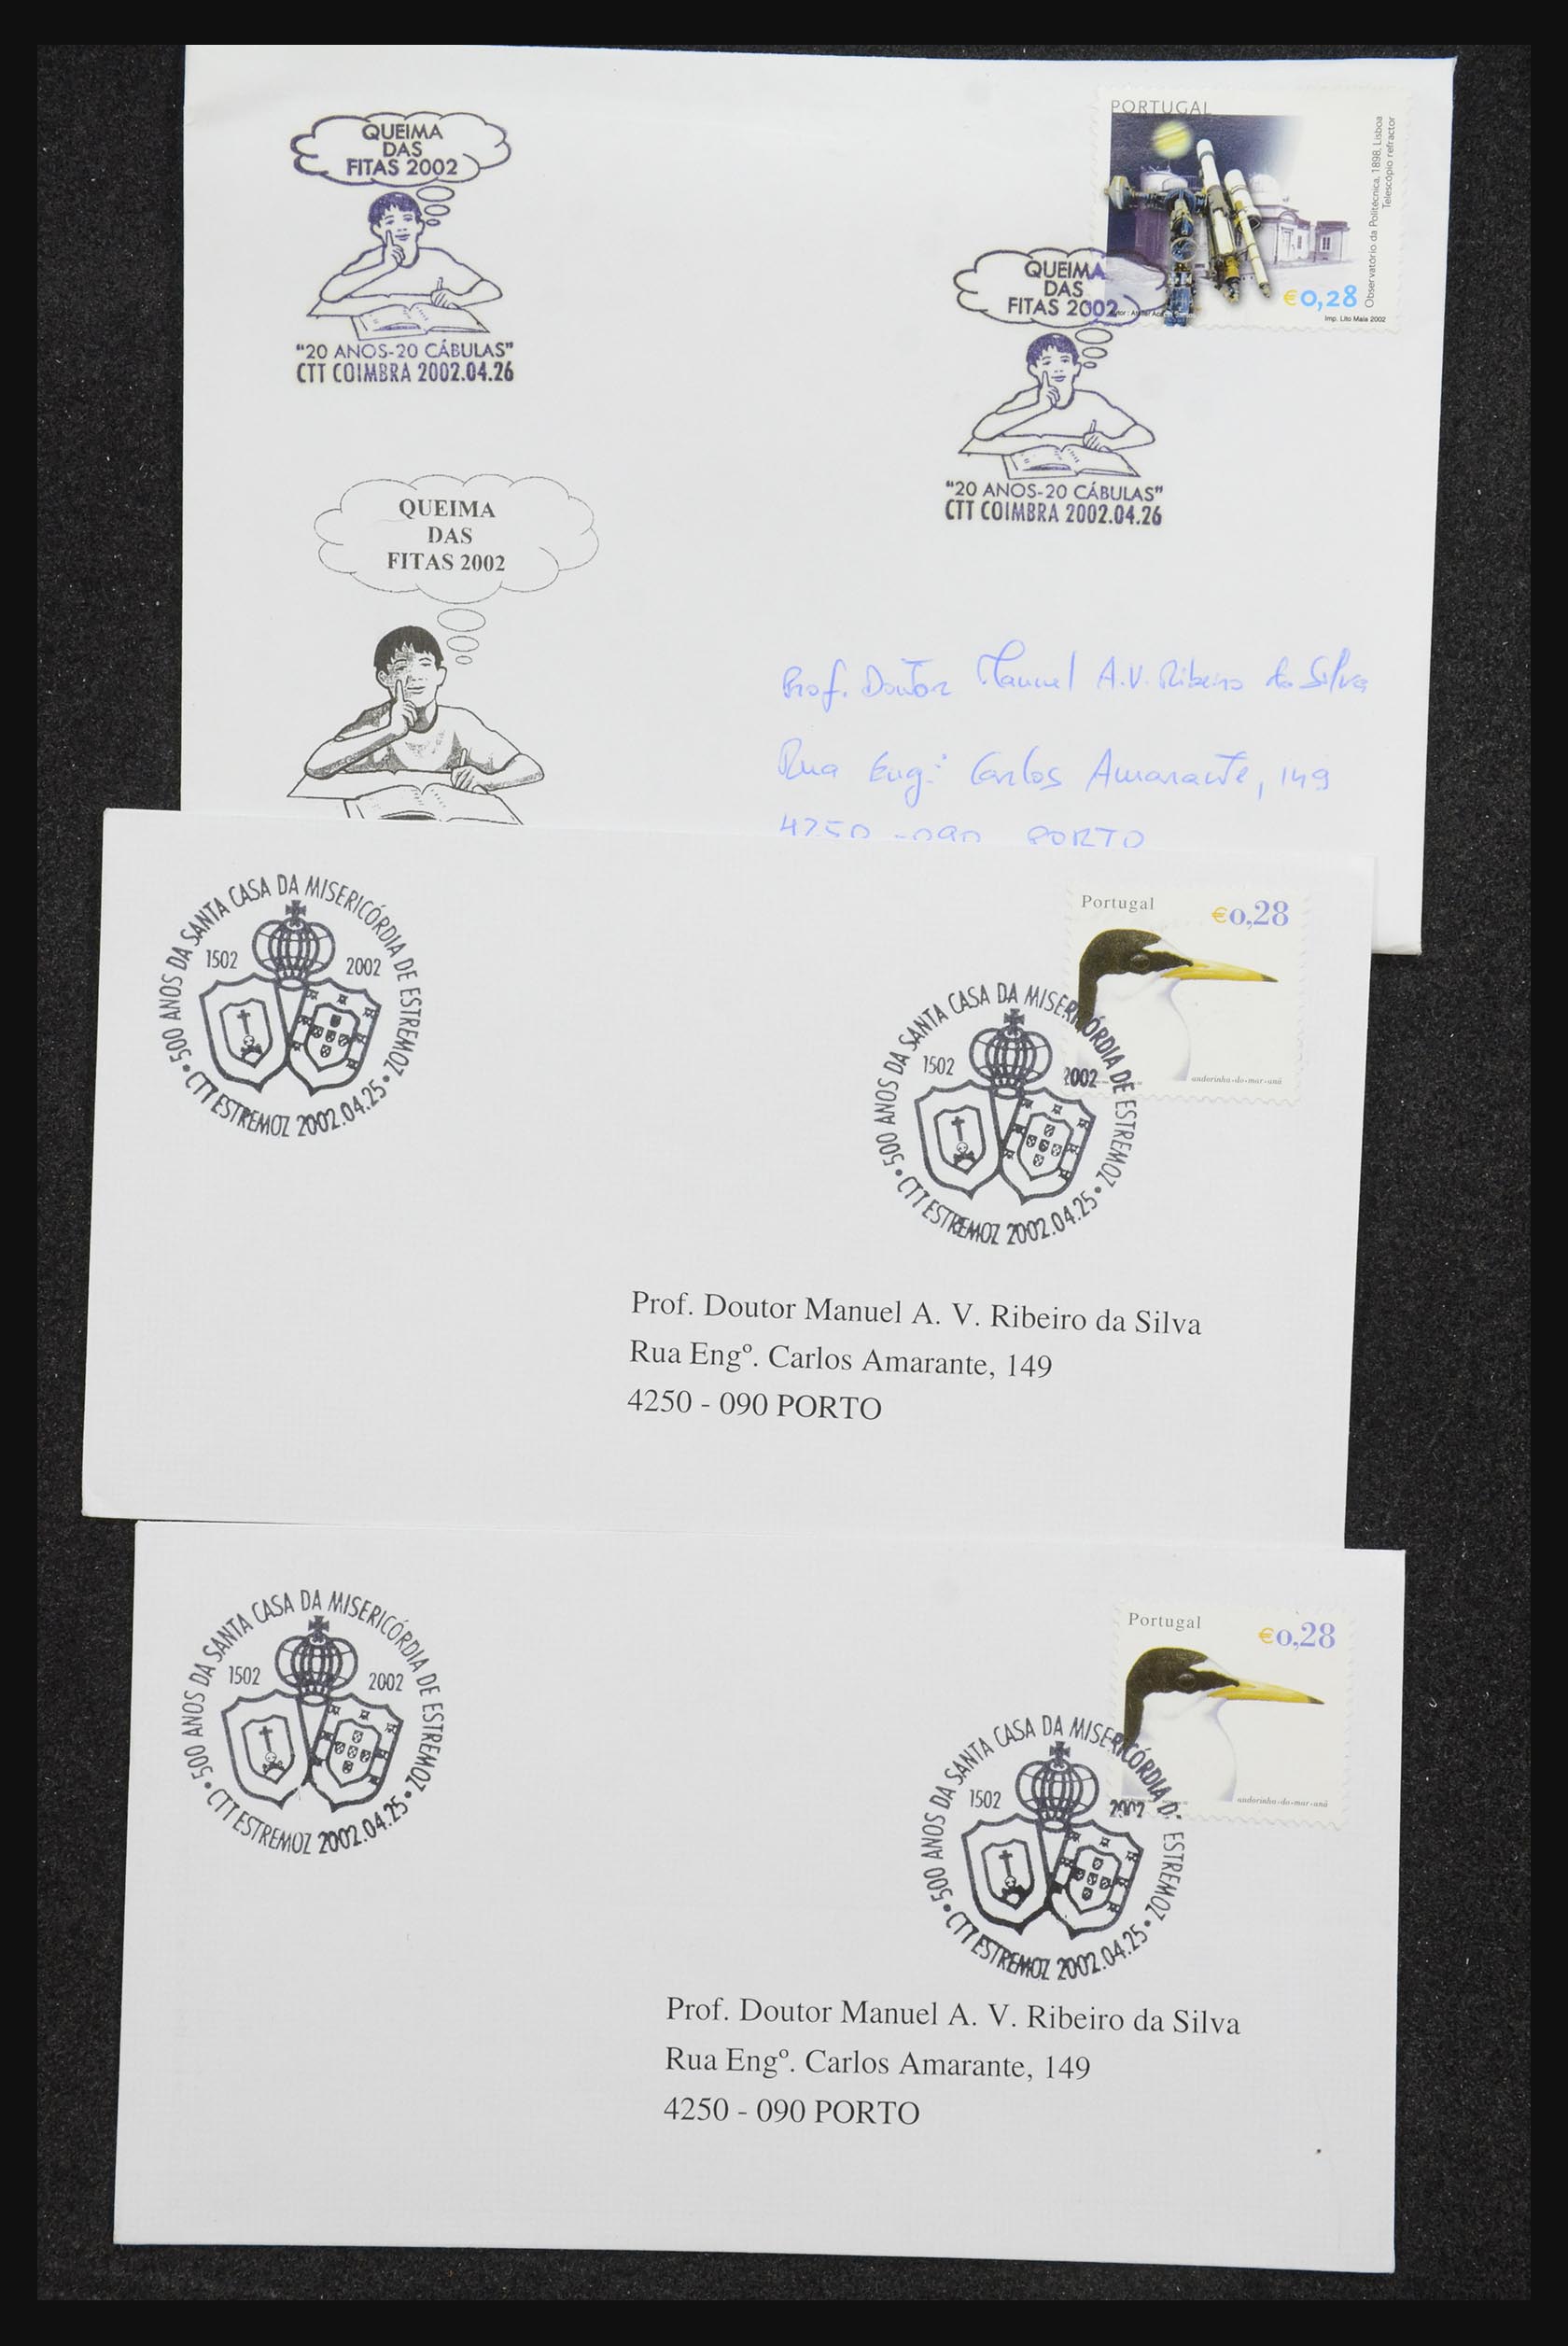 QUEIMA
DAS
FITAS 2002
"20 ANOS-20 CÁBULAS"
CTT COIMBRA 2002.04.26
PORTUGAL
Observatório da Politécnica, 1898, Lisboa
Telescópio refractor
€0,28
Imp. Lito Maia 2002
QUEIMA
DAS
FITAS 2002
"20 ANOS-20 CÁBULAS"
CTT COIMBRA 2002.04.26
QUEIMA
DAS
FITAS 2002
Prof. Doutor Manuel A.V. Ribeiro da Silva
Rua Eng.º Carlos Amarante, 149
4250 - 090 PORTO
500 ANOS DA SANTA CASA DA MISERICÓRDIA DE ESTREMOZ
1502 2002
CTT ESTREMOZ 2002.04.25
Portugal
€0,28
andorinha-do-mar-anã
500 ANOS DA SANTA CASA DA MISERICÓRDIA DE ESTREMOZ
1502 2002
CTT ESTREMOZ 2002.04.25
Prof. Doutor Manuel A. V. Ribeiro da Silva
Rua Engº. Carlos Amarante, 149
4250 - 090 PORTO
500 ANOS DA SANTA CASA DA MISERICÓRDIA DE ESTREMOZ
1502 2002
CTT ESTREMOZ 2002.04.25
Portugal
€0,28
andorinha-do-mar-anã
500 ANOS DA SANTA CASA DA MISERICÓRDIA DE ESTREMOZ
1502 2002
CTT ESTREMOZ 2002.04.25
Prof. Doutor Manuel A. V. Ribeiro da Silva
Rua Engº. Carlos Amarante, 149
4250 - 090 PORTO